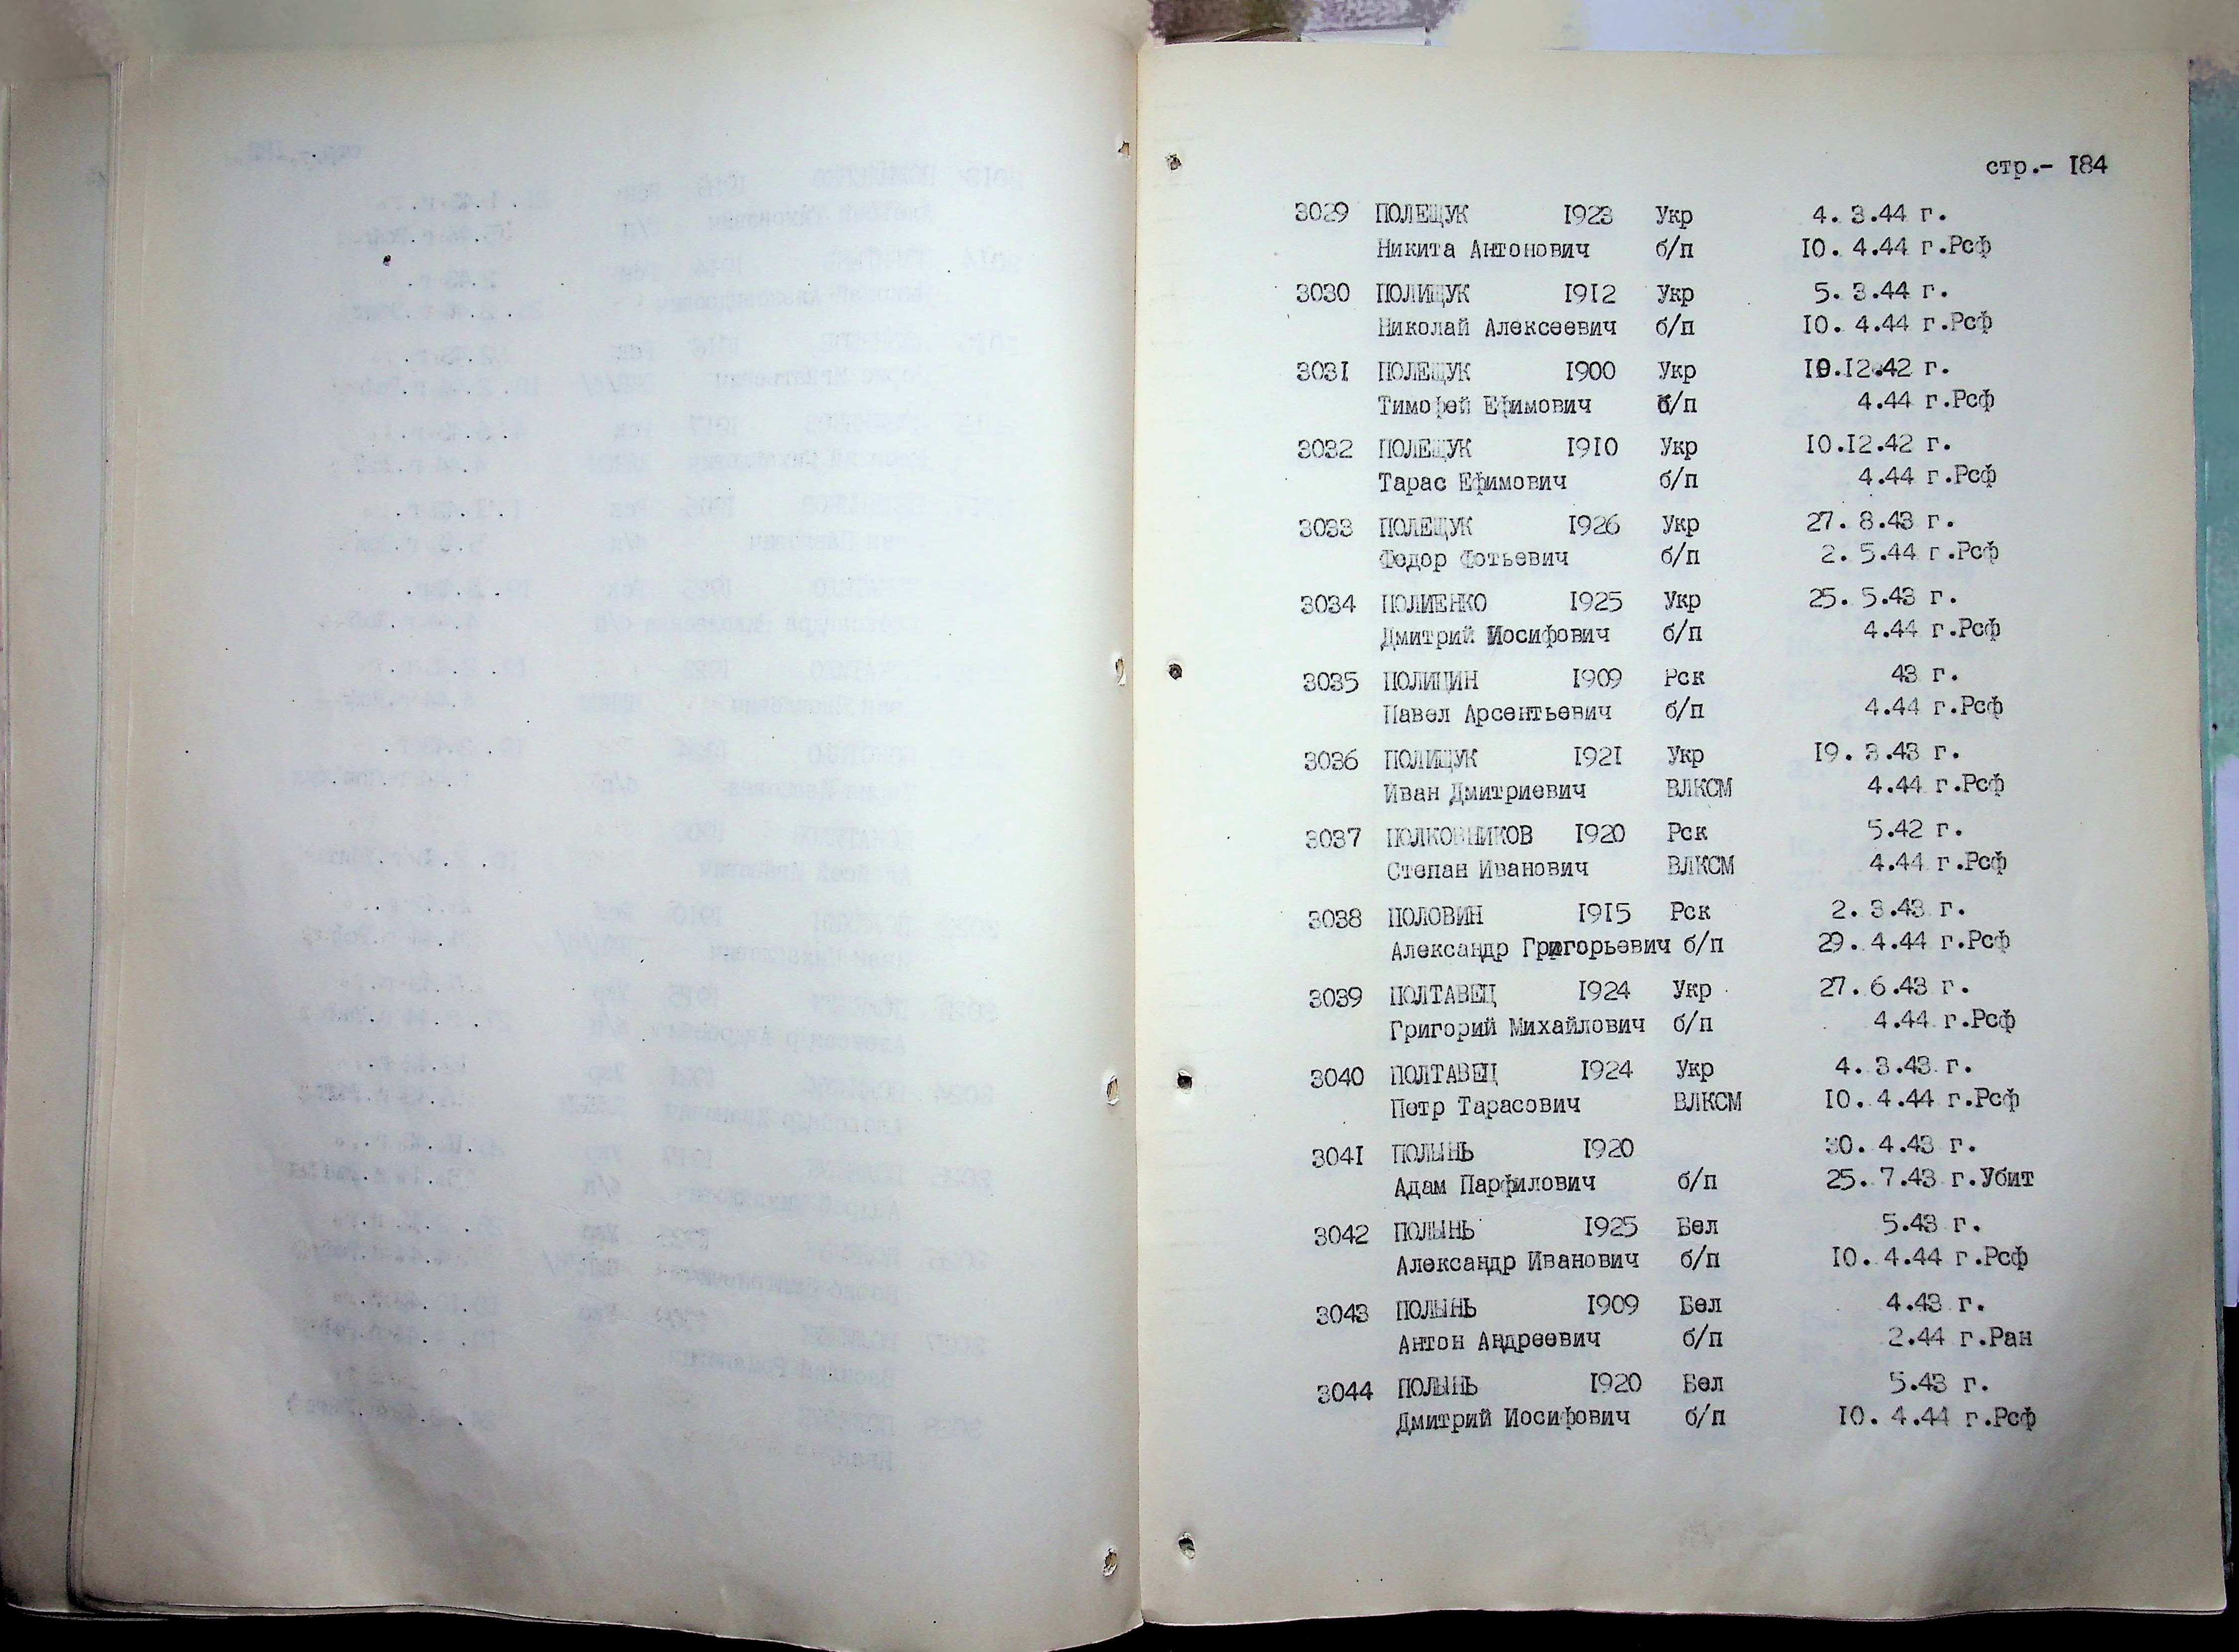 стр.- 184
3029 ПОЛЕЩУК 1923 Укр 4. 3.44 г.
Никита Антонович б/п 10. 4.44 г.Рсф
3030 ПОЛИЩУК 1912 Укр 5. 3.44 г.
Николай Алексеевич б/п 10. 4.44 г.Рсф
3031 ПОЛЕЩУК 1900 Укр 10.12.42 г.
Тимофей Ефимович б/п 4.44 г.Рсф
3032 ПОЛЕЩУК 1910 Укр 10.12.42 г.
Тарас Ефимович б/п 4.44 г.Рсф
3033 ПОЛЕЩУК 1926 Укр 27. 8.43 г.
Федор Фотьевич б/п 2. 5.44 г.Рсф
3034 ПОЛИЕНКО 1925 Укр 25. 5.43 г.
Дмитрий Иосифович б/п 4.44 г.Рсф
3035 1909 Рск 43 г.
Павел Арсентьевич б/п 4.44 г.Рсф
3036 ПОЛИЩУК 1921 Укр 19. 3.43 г.
Иван Дмитриевич ВЛКСМ 4.44 г.Рсф
3037 ПОЛКОВНИКОВ 1920 Рск 5.42 г.
Степан Иванович ВЛКСМ 4.44 г.Рсф
3038 ПОЛОВИН 1915 Рск 2. 3.43 г.
Александр Григорьевич б/п 29. 4.44 г.Рсф
3039 ПОЛТАВЕЦ 1924 Укр 27. 6.43 г.
Григорий Михайлович б/п 4.44 г.Рсф
3040 ПОЛТАВЕЦ 1924 Укр 4. 3.43 г.
Петр Тарасович ВЛКСМ 10. 4.44 г.Рсф
3041 ПОЛЫНЬ 1920 30. 4.43 г.
Адам Парфилович б/п 25. 7.43 г.Убит
3042 ПОЛЫНЬ 1925 Бел 5.43 г.
Александр Иванович б/п 10. 4.44 г.Рсф
3043 ПОЛЫНЬ 1909 Бел 4.43 г.
Антон Андреевич б/п 2.44 г.Ран
3044 ПОЛЫНЬ 1920 Бел 5.43 г.
Дмитрий Иосифович б/п 10. 4.44 г.Рсф